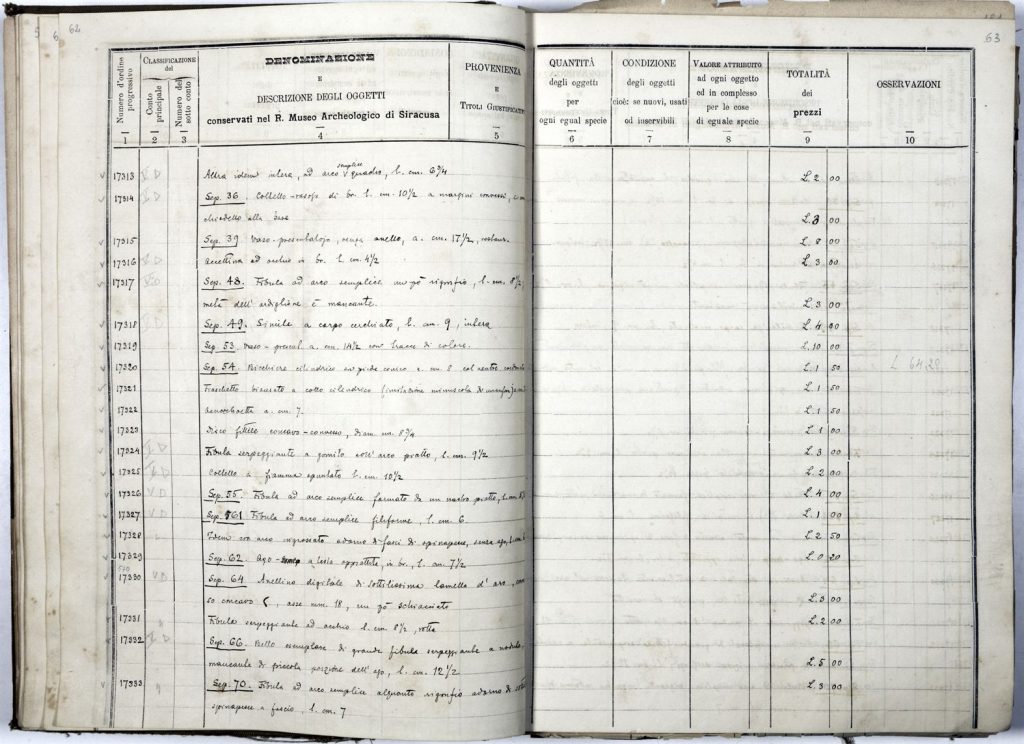 62
63
Numero d'ordine progressivo
CLASSIFICAZIONE del
Conto principale
Numero del sotto conto
DENOMINAZIONE
E
DESCRIZIONE DEGLI OGGETTI
conservati nel R. Museo Archeologico di Siracusa
PROVENIENZA
E
TITOLI GIUSTIFICATI
QUANTITÀ
degli oggetti
per
ogni egual specie
CONDIZIONE
degli oggetti
cioè: se nuovi, usati
od inservibili
VALORE ATTRIBUITO
ad ogni oggetto
ed in complesso
per le cose
di eguale specie
TOTALITÀ
dei
prezzi
OSSERVAZIONI
1 2 3 4 5 6 7 8 9 10
17313 Altra idem intera, ad arco semplice l. cm. 6 3/4 L. 2 00
17314 Sep. 36. Coltello-rasoio di br. l. cm. 10 1/2 a margini convessi,
chiodetto alla base L. 3 00
17315 Sep. 39 Vaso-presentatoio, senza anello, a. cm. 17 1/2, restaur. L. 8 00
17316 Accettina ad occhio in br. l. cm. 4 1/2 L. 3 00
17317 Sep. 48. Fibula ad arco semplice un pò rigonfio, l. cm. 8 1/2,
metà dell' ardiglione è mancante. L. 3 00
17318 Sep. 49. Simile a corpo cerchiato, l. cm. 9, intera L. 4 00
17319 Sep. 53. Vaso-present. a. cm. 14 1/2 con tracce di colore. L. 10 00
17320 Sep. 54. Bicchiere cilindrico su piede conico a. cm. 8 col ventre L. 1 50
L 64,20
17321 Fiaschetto a collo cilindrico (imitazione minuscola di L. 1 50
17322 Oenochoetta a. cm. 7. L. 1 50
17323 Disco fittile concavo-convesso, diam. cm. 8 3/4 L. 1 00
17324 Fibula serpeggiante a gomito coll' arco piatto, l. cm. 9 1/2 L. 3 00
17325 Coltello a fiamma spuntato l. cm. 10 1/2 L. 2 00
17326 Sep. 55. Fibula ad arco semplice formata da un nastro piatto, l. cm. L. 4 00
17327 Sep. 561 Fibula ad arco semplice filiforme, l. cm. 6. L. 1 00
17328 Idem con arco ingrossato adorno di fasci di spinapesce, senza ago, L. 2 50
17329 Sep. 62. Ago a testa appiattita, in br., l. cm. 7 1/2 L. 0 20
17330 Sep. 64. Anellino digitale di sottilissima lamella d' oro,
so concavo (, asse mm. 18, un pò schiacciato L. 3 00
17331 Fibula serpeggiante ad occhio l. cm. 8 1/2, rotta L. 2 00
17332 Sep. 66. Bello esemplare di grande fibula serpeggiante a
mancante di piccola porzione dell' ago, l. cm. 12 1/2 L. 5 00
17333 Sep. 70. Fibula ad arco semplice alquanto rigonfio adorno di
spinapesce a fascio, l. cm. 7 L. 3 00